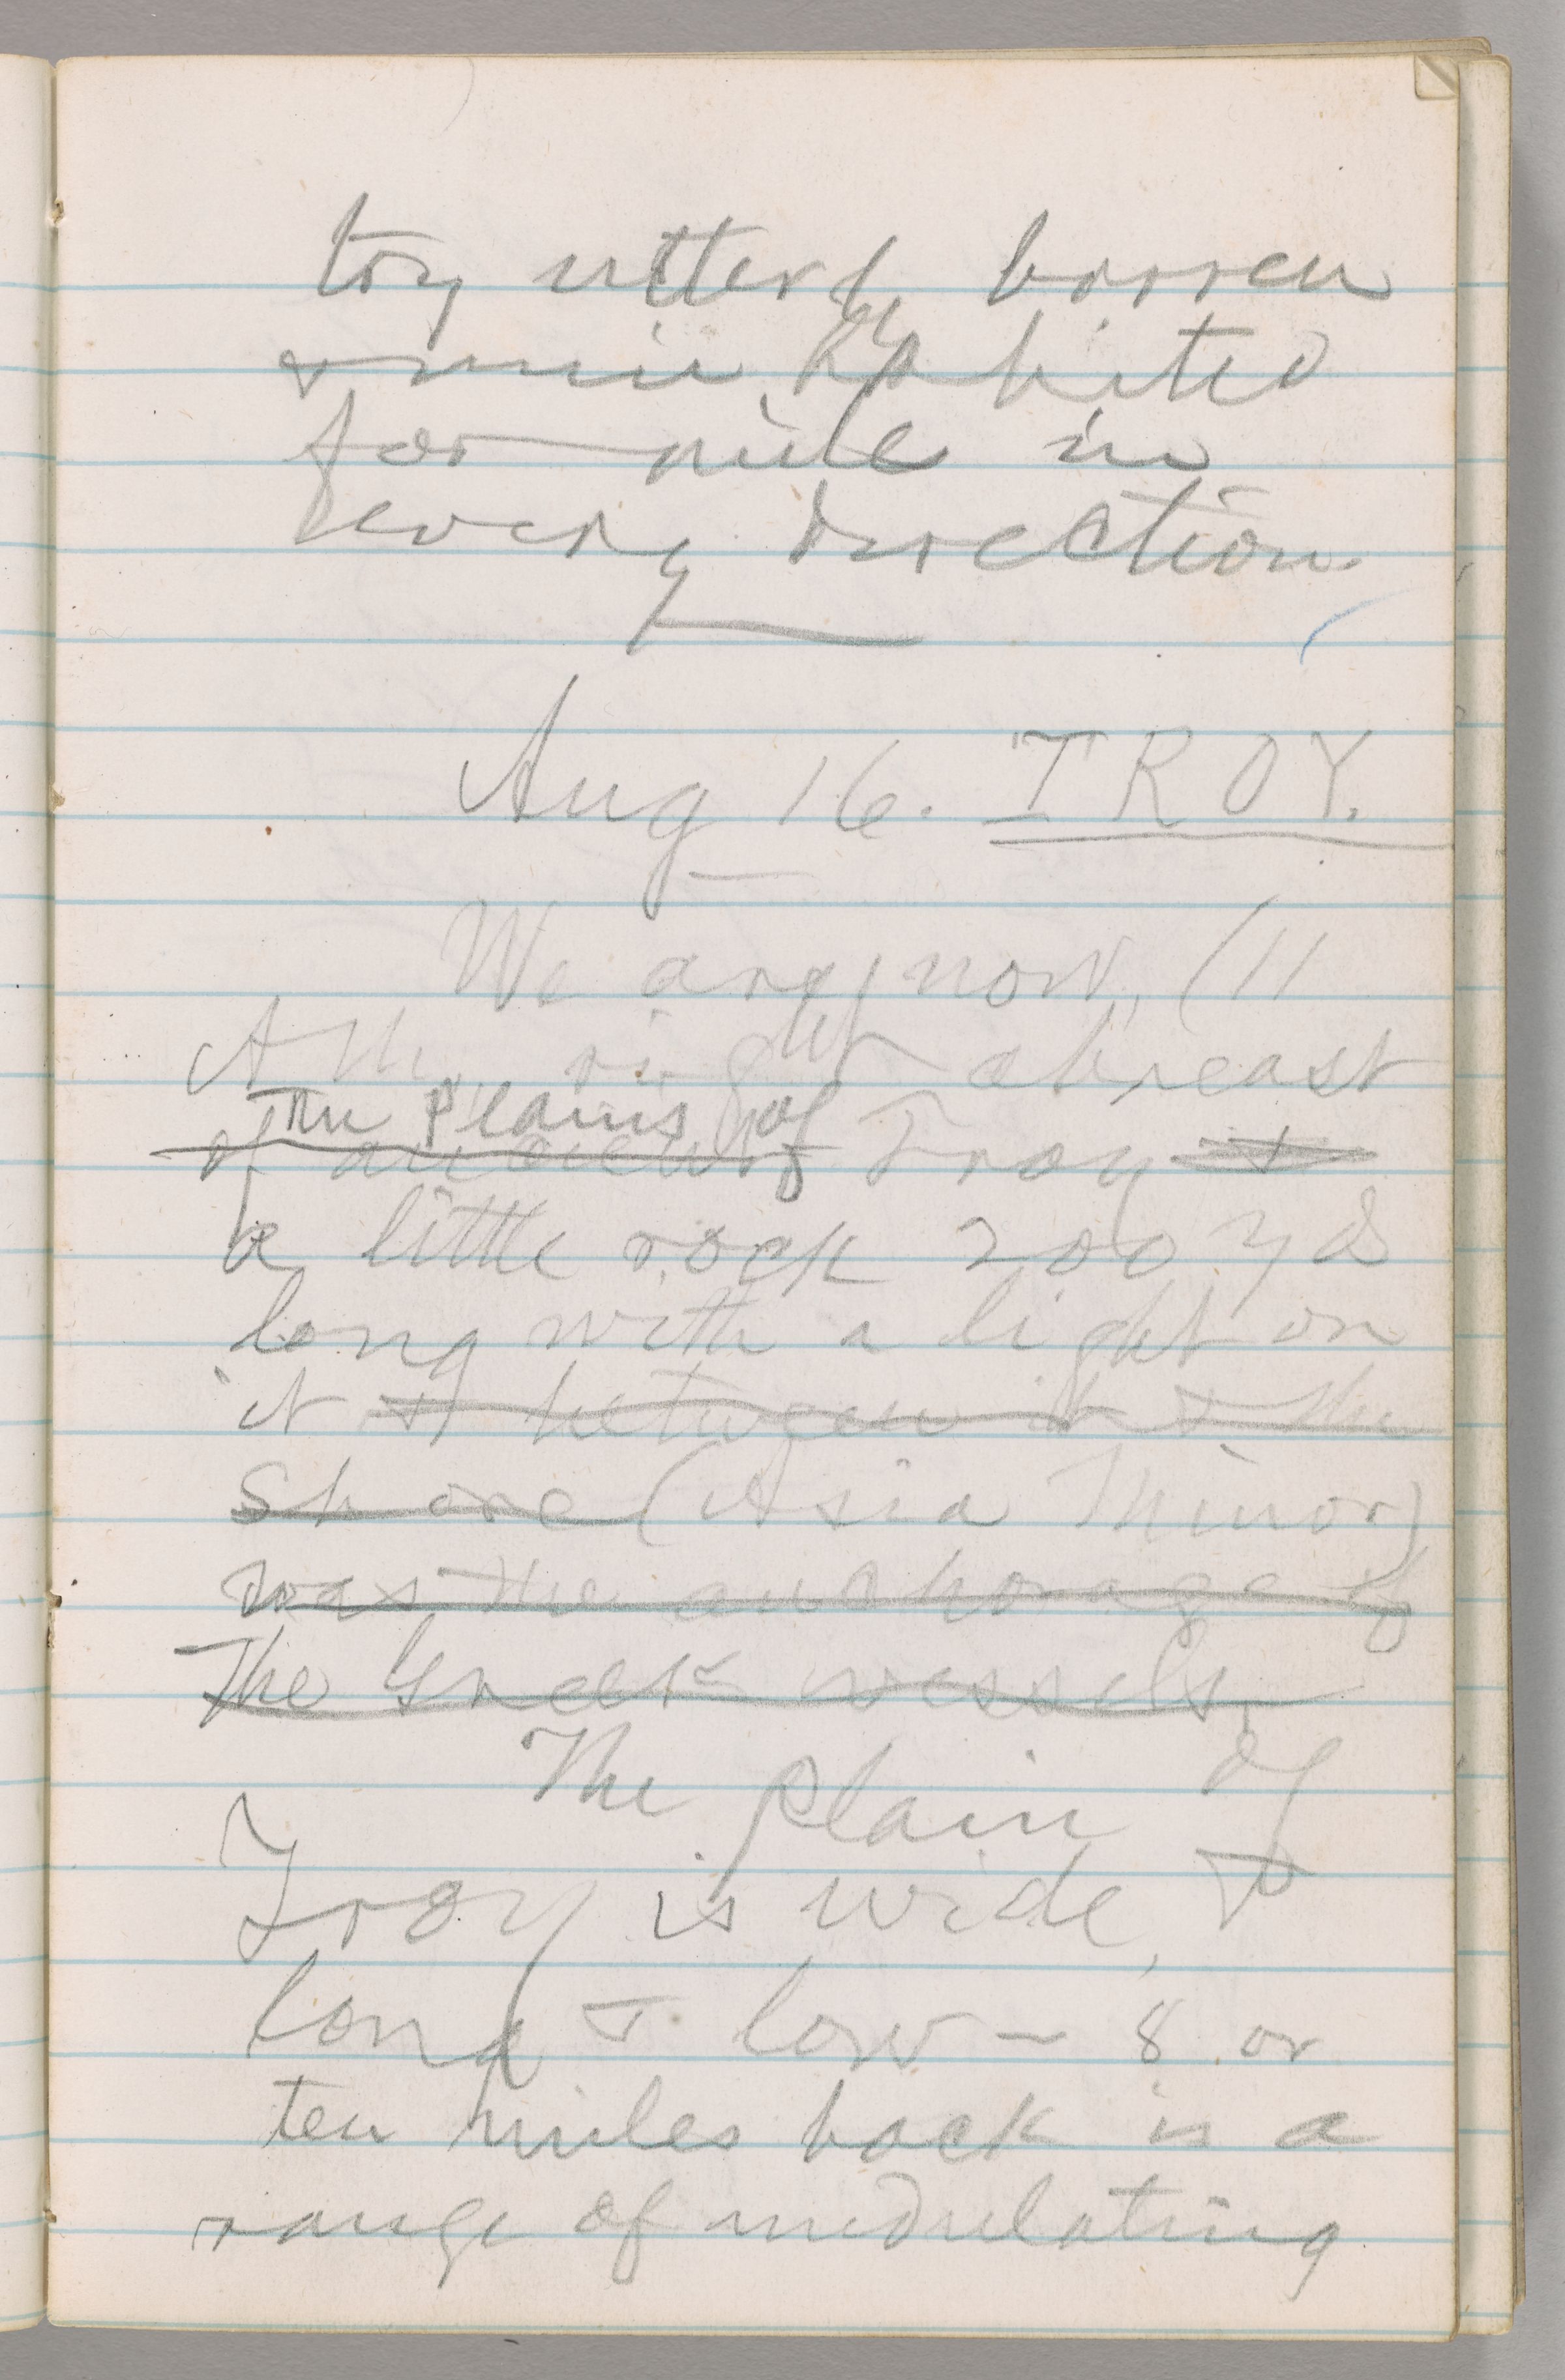 try utterly barren
& uninhabited
for mile in
every direction.
Aug 16. TROY.
We are, now, (11
AM., right abreast
The Plains of
of ancient Troy &
a little rock 200 yd
long with a light on
it & between it & the
shore (Asia Minor)
was the anchorage of
the Greek vessels.
The plain of
Troy is wide, &
long & low — 8 or
ten miles back is a
range of undulating